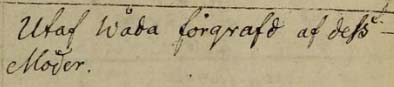 Utaf wåda förqrafd af dess
Moder.